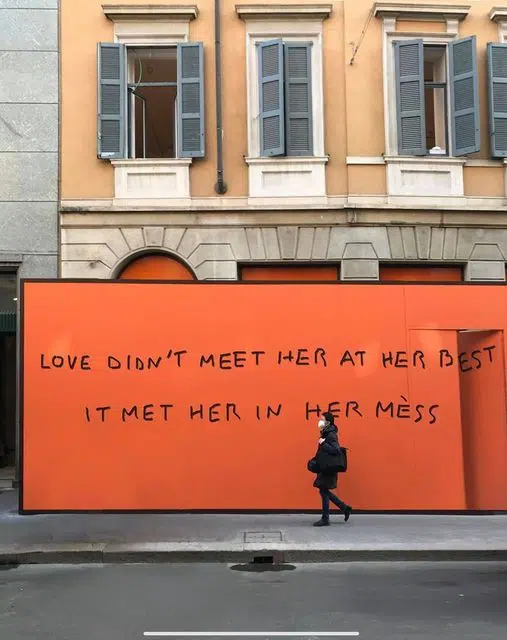 LOVE DIDN'T MEET HER AT HER BEST
IT MET HER IN HER MÈSS